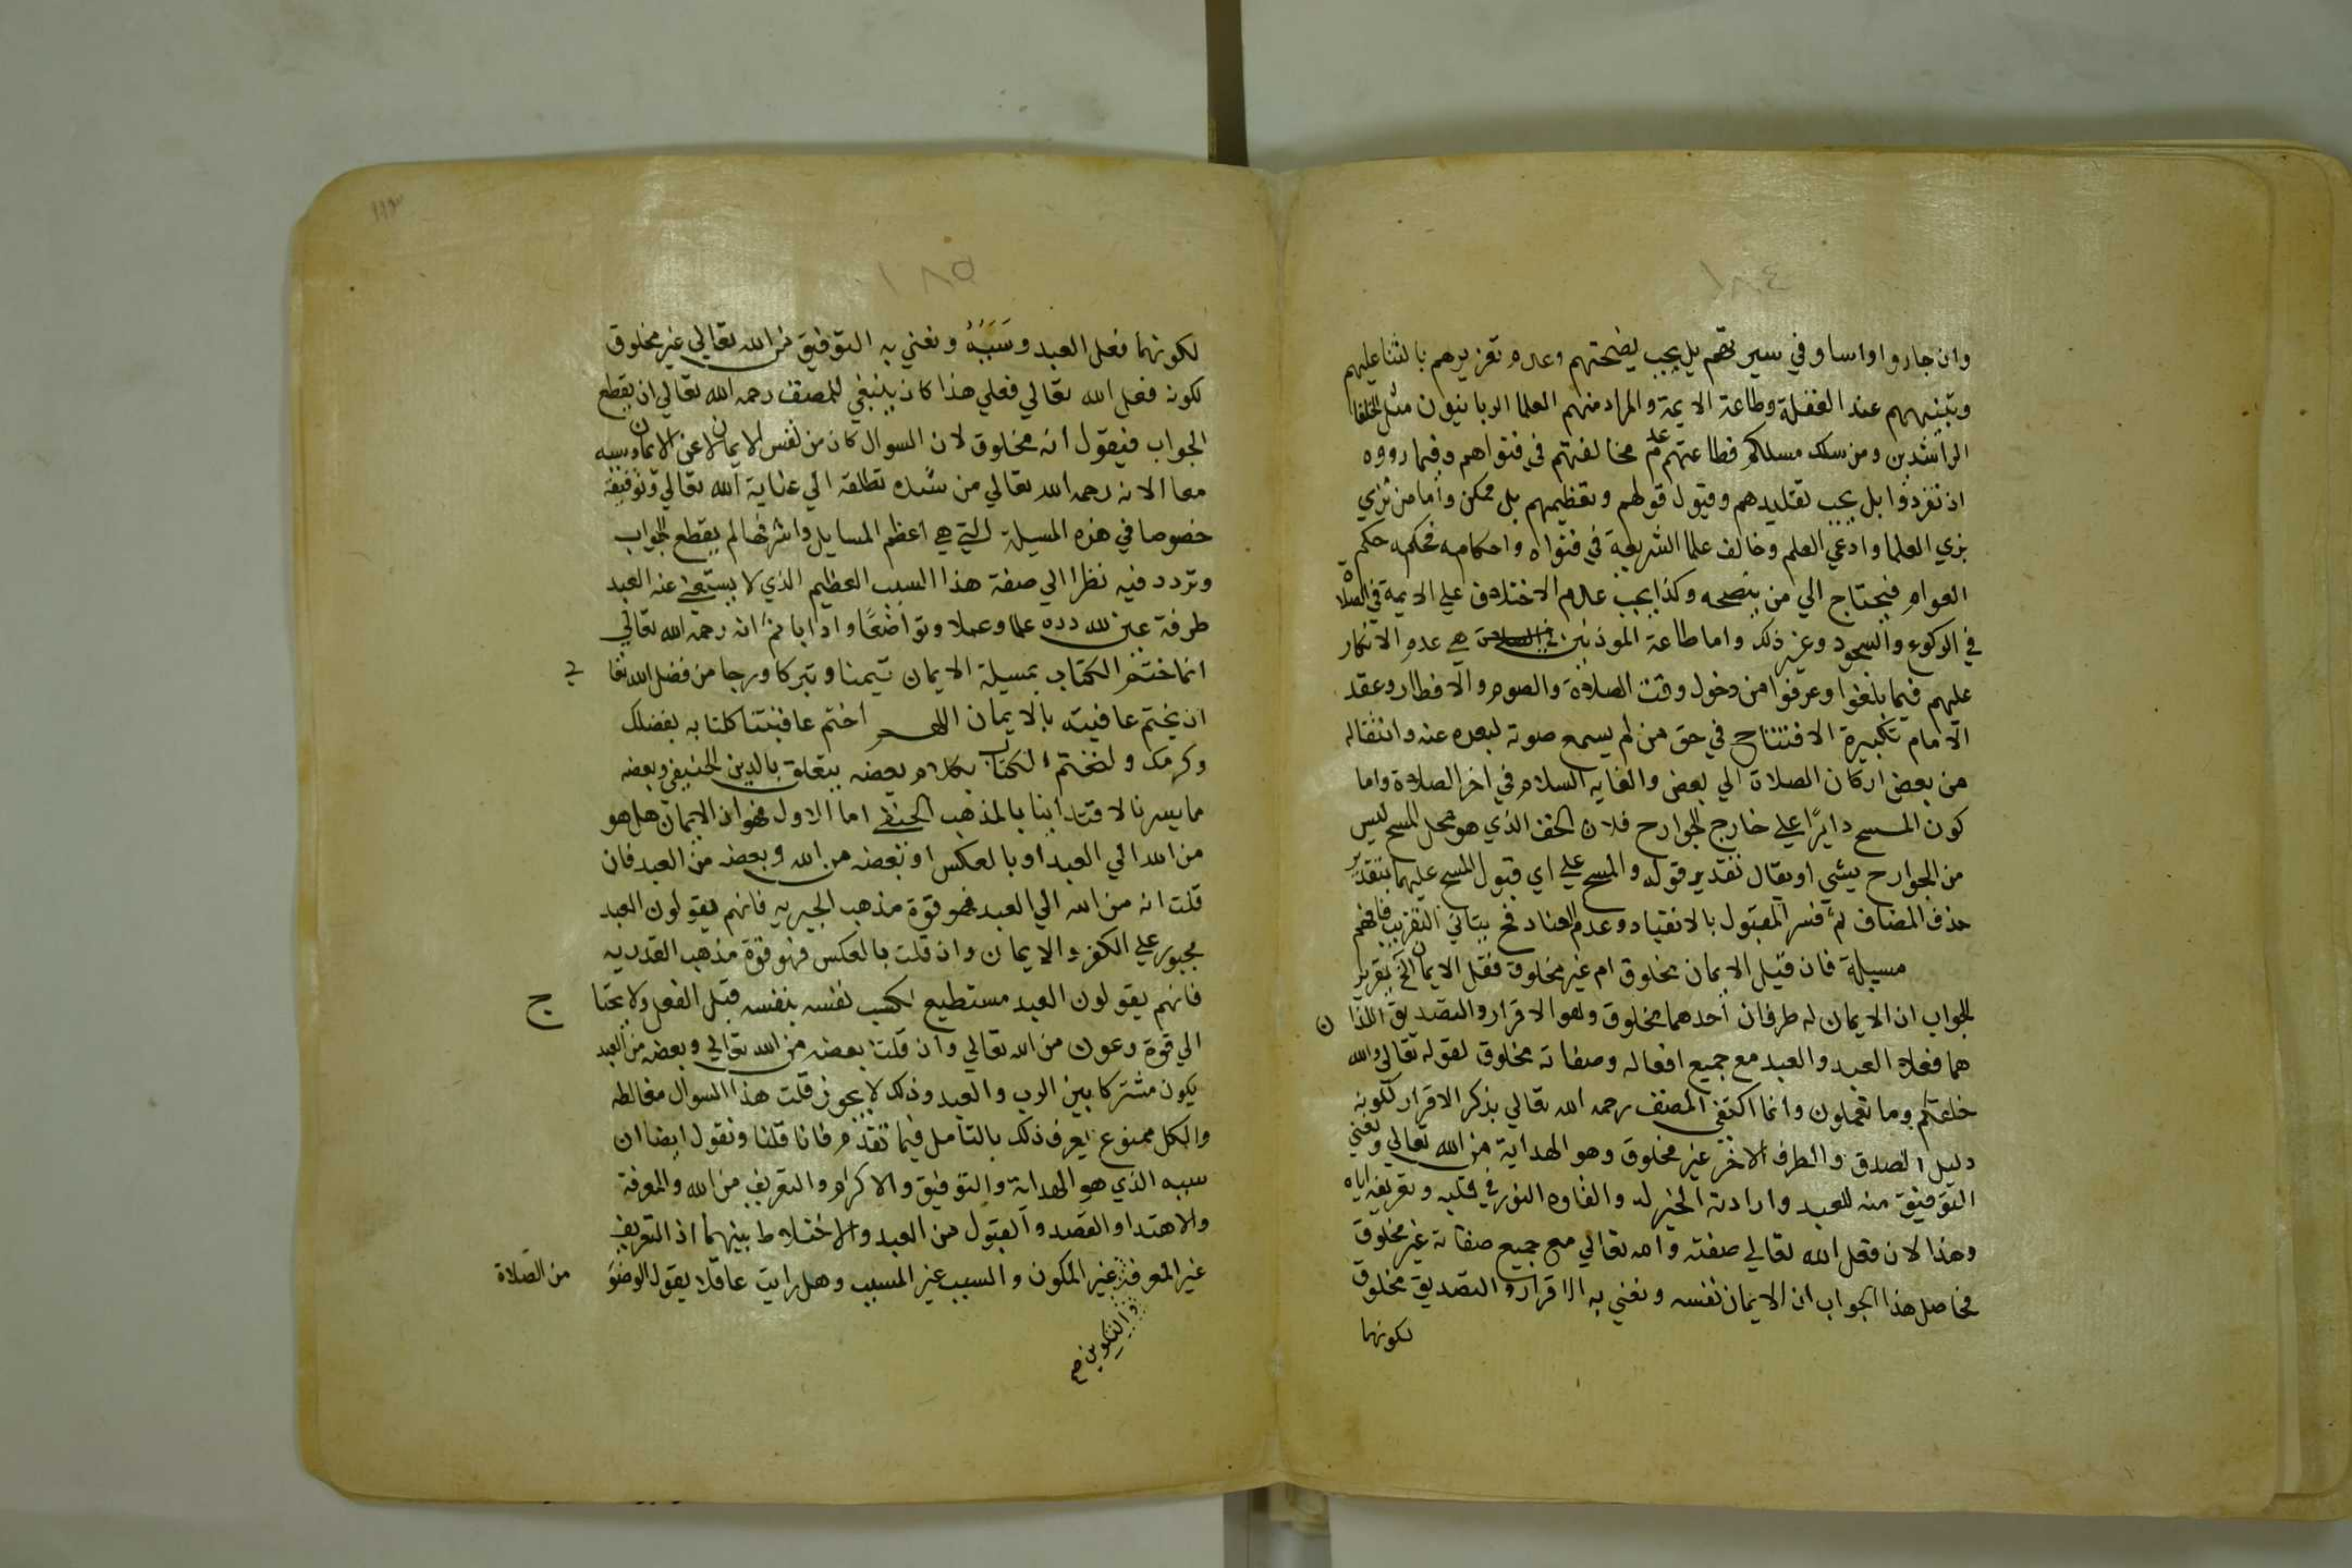 ١٨٤
وان جاروا واساو في سيرتهم بل يجب نصيحتهم وعدم تعزيرهم بالثنا عليهم
وتنبيههم عند الغفلة وطاعة الايمة والمراد منهم العلما الربانيون مثل الخلفا
الراشدين ومن سلك مسلكهم فطاعتهم عدم مخالفتهم في فتواهم وفيما رووه
اذ تفردوا بل يجب تقليدهم وقبول قولهم وتعظيمهم بل ممكن واما من تزي
بزي العلما وادعي العلم وخالف علما الشريعة في فتواه واحكامه فحكمه حكم
العوام فيحتاج الي من ينصحه وكذا يجب عدم الاختلاف علي الايمة في الصلاة
في الركوع والسجود وغير ذلك واما طاعة الموذنين هي عدم الانكار
عليهم فيما بلغوا وعرفوا من دخول وقت الصلاة والصوم والافطار وعقد
الامام تكبيرة الافتتاح في حق من لم يسمع صوته لبعده عنه وانتقاله
من بعض اركان الصلاة الي بعض والغايه السلام في اخر الصلاة واما
كون المسح دايرًا علي خارج الجوارح فلان الخف الذي هو محل المسح ليس
من الجوارح بشي او يقال تقدير قوله والمسح علي اي قبول المسح عليهما بتقدير
حذف المضاف ثم فسر القبول بالانقياد وعدم العناد فح يتاتي التقريب فافهم
مسيلة فان قيل الايمان مخلوق ام غير مخلوق فقل الايمان الخ تقرير
الجواب ان الايمان له طرفان احدهما مخلوق وهو الاقرار والتصديق اللذا ن
هما فعلا العبد والعبد مع جميع افعاله وصفاته مخلوق لقوله تعالي والله
خلقكم وما تعملون وانما اكتفي المصنف رحمه الله تعالي بذكر الاقرار لكونه
دليل الصدق والطرف الاخر غير مخلوق وهو الهداية من الله تعالي ونعني
التوفيق منه للعبد وارادته الخير له والقاوه النور في قلبه وتعريفه اياه
وهذا لان فعل الله تعالي صفته والله تعالي مع جميع صفاته غير مخلوق
فحاصل هذا الجواب ان الايمان نفسه ونعني به الاقرار والتصديق مخلوق
لكونهما
١٨٥
لكونهما فعل العبد وسَبَبُهُ ونعني به التوفيق من الله تعالي غير مخلوق
لكونه فعل الله تعالي فعلي هذا كان ينبغي للمصنف رحمه الله تعالي ان يقطع
الجواب فيقول انه مخلوق لان السوال كان من نفس الايمان لا عن الايمان وسببه
معا الا انه رحمه الله تعالي من شدة تعلقه الي عناية الله تعالي وتوفيقه
خصوصا في هذه المسيلة التي هي اعظم المسايل واشرفها لم يقطع الجواب
وتردد فيه نظرا الي صفة هذا السبب العظيم الذي لا يستغني عنه العبد
طرفة عين لله دره علما وعملا وتواضعًا وادابا ثم انه رحمه الله تعالي
انما ختم الكتاب بمسيلة الايمان تيمنا وتبركا ورجا من فضل الله تعا لي
ان يختم عاقبته بالايمان اللهم اختم عاقبتنا كلنا به بفضلك
وكرمك ولنختم الكتاب بكلام بعضه يتعلق بالدين الحنيفي وبعضه
ما يسرنا لاقتداينا بالمذهب الحنفي اما الاول فهو ان الايمان هل هو
من الله الي العبد او بالعكس او بعضه من الله وبعضه من العبد فان
قلت انه من الله الي العبد فهو قوة مذهب الجبريه فانهم يقولون العبد
مجبور علي الكفر والايمان وان قلت بالعكس فهو قوة مذهب القدريه
فانهم يقولون العبد مستطيع لكسب نفسه بنفسه قبل الفعل ولا يحتا ج
الي قوة وعون من الله تعالي وان قلت بعضه من الله تعالي وبعضه من العبد
يكون مشتركا بين الرب والعبد وذلك لا يجوز قلت هذا السوال مغالطه
والكل ممنوع يعرف ذلك بالتامل فيما تقدم فانا قلنا ونقول ايضا ان
سببه الذي هو الهداية والتوفيق والاكرام والتعريف من الله والمعرفة
والاهتدا والقصد والقبول من العبد والاختلاط بينهما اذ التعريف
غير المعرفة غير المكون والسبب غير المسبب وهل رايت عاقلا يقول الوضوَ من الصَلاة
والتكوين صح